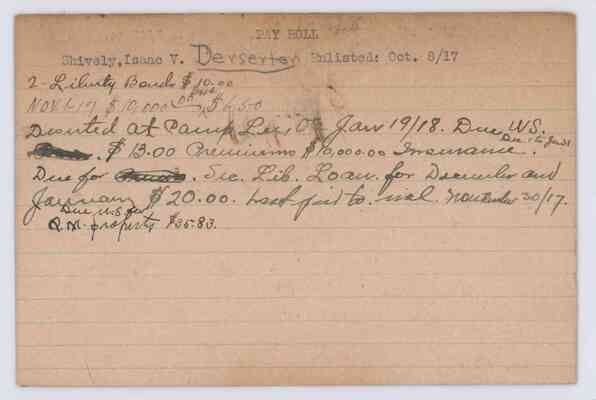 PAY ROLL
Shively, Isaac V. Derserter Enlisted: Oct. 8/17
2 - Liberty Bonds $10.00
Nov 1-17 $10,000 $6.50
Deserted at Camp Lee, Jan 19/18. Due U.S.
Dec 1 to Jan 31
$13.00 Premiums $10,000.00 Insurance.
Due for Sec. Lib. Loan. for December and
January $20.00. Last paid to incl. November 30/17.
Due U.S. for
Q.M. property $35.83.